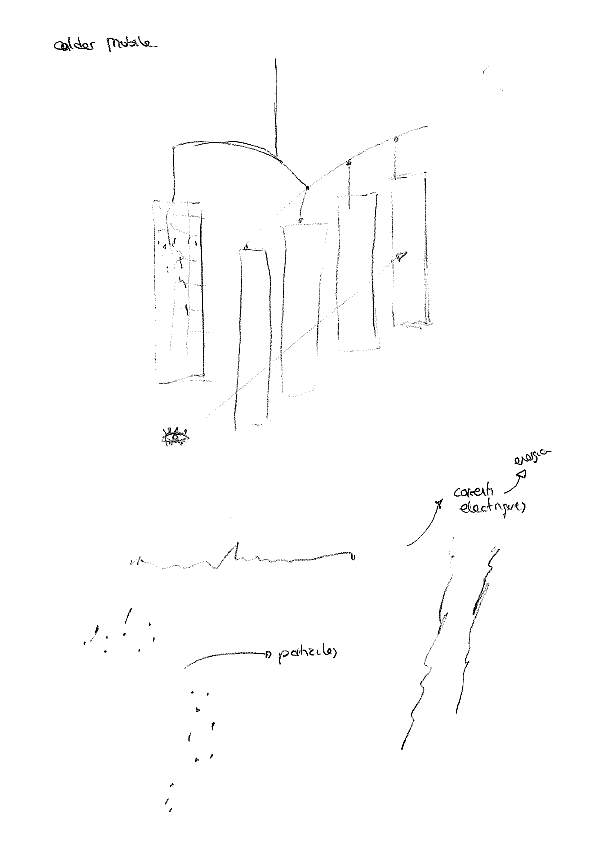 calder mobile
energia
corrents
electriques
particules